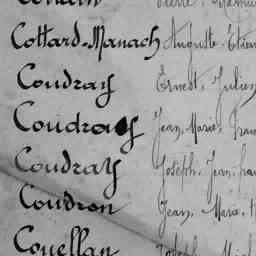 Cottard-Manach Auguste. Etien
Coudray Ernest. Julien
Coudray Jean. Marie. Fran
Coudray Joseph. Jean. Fra
Coudron Jean. Marie.
Couellan Joseph.